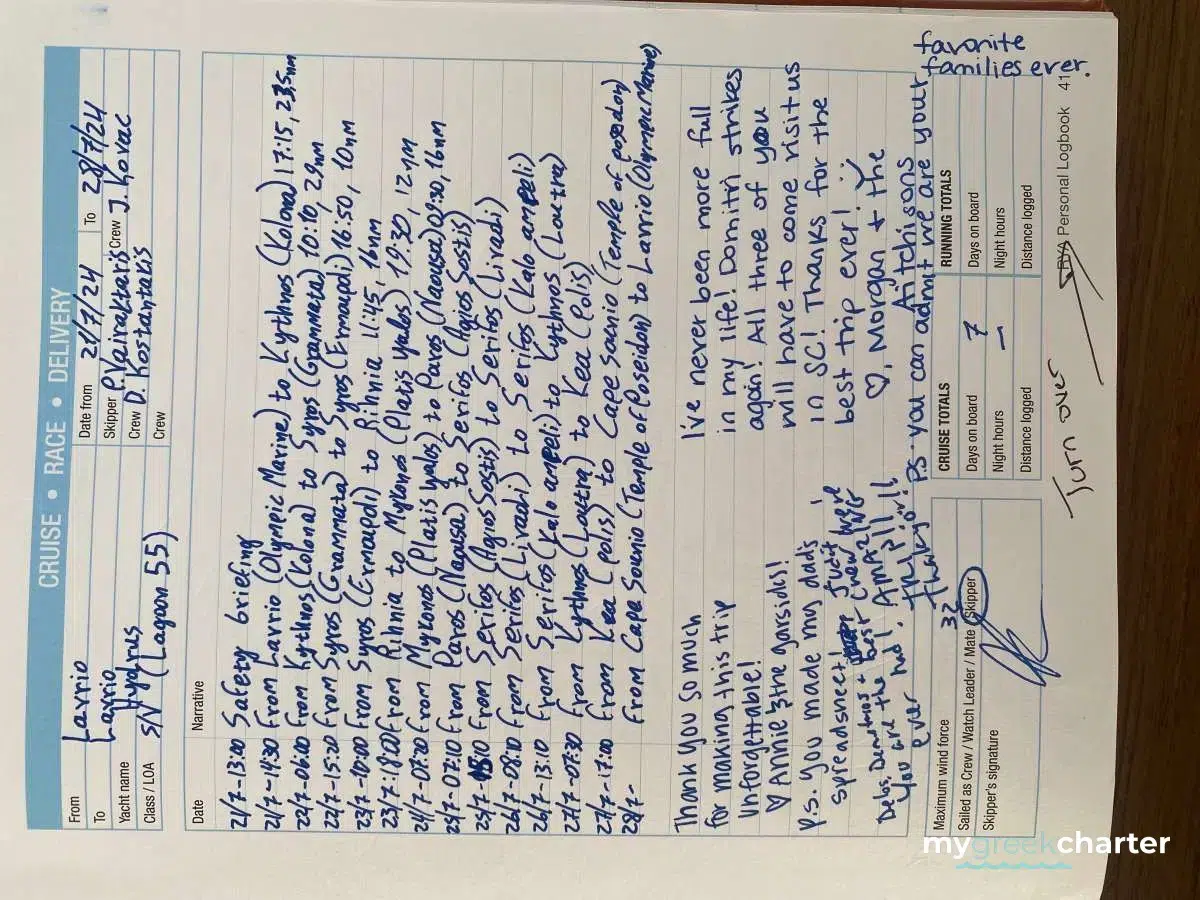 CRUISE • RACE • DELIVERY
From Lavrio
To Lavrio
Yacht name Hydrus
Class / LOA S/V (Lagoon 55)
Date from 21/7/24 To 28/7/24
Skipper P. Vairaktaris Crew J. Kovac
Crew D. Kostantakis
Crew
Date Narrative
21/7-13:00 Safety briefing
21/7-14:30 From Lavrio (Olympic Marine) to Kythnos (Kolona) 17:15, 23,5nm
22/7-06:00 From Kythnos (Kolona) to Syros (Grammata) 10:10, 29nm
22/7-15:20 From Syros (Grammata to Syros (Ermoupoli) 16:50, 10nm
23/7-10:00 From Syros (Ermoupoli) to Rihnia 11:45, 16nm
23/7-18:00 From Rihnia to Mykonos (Platis yalos) 19:30, 12nm
24/7-07:20 From Mykonos (Platis yalos) to Paros (Naousa) 09:30, 16nm
25/7-07:10 From Paros (Naousa) to Serifos (Agios Sostis)
25/7-15:10 From Serifos (Agios Sostis) to Serifos (Livadi)
26/7-08:10 From Serifos (Livadi) to Serifos (Kalo ampeli)
26/7-13:10 From Serifos (Kalo ampeli) to Kythnos (Loutra)
27/7-07:30 From Kythnos (Loutra) to Kea (Polis)
27/7-17:00 From Kea (polis) to Cape Sounio (Temple of posedon)
28/7- From Cape Sounio (Temple of Poseidon) to Lavrio (Olympic Marine)
Thank you so much
for making this trip
unforgettable!
♡ Annie & the garsids!
p.s. you made my dad's
spreadsheet!
Debs, Demitrios + Judit were
the best crew we've
You are had! AMAZING
ever TRIP!!!
Thankyou!!
I've never been more full
in my life! Domitri strikes
again! All three of you
will have to come visit us
in SC! Thanks for the
best trip ever!
♡, Morgan + the
Aitchisons
P.S. you can admit we are your
favorite
families ever.
Maximum wind force 32
Sailed as Crew / Watch Leader / Mate / Skipper
Skipper's signature
CRUISE TOTALS
Days on board 7
Night hours —
Distance logged
RUNNING TOTALS
Days on board
Night hours
Distance logged
Turn over
RYA Personal Logbook 41
mygreekcharter